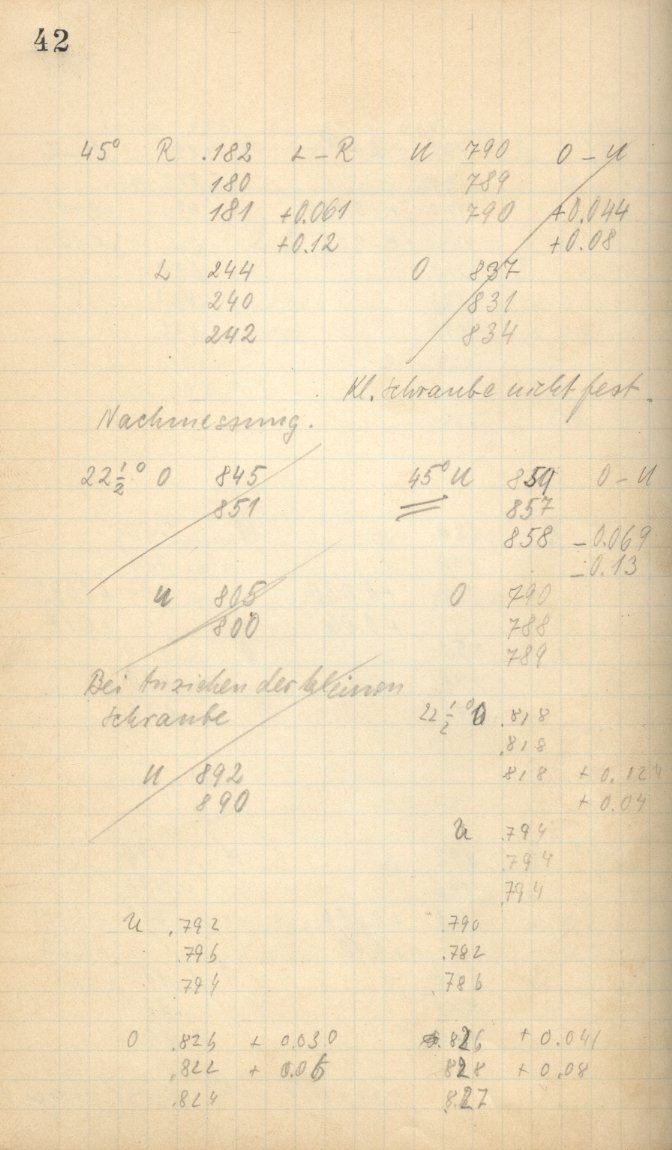 42
45° R .182 L - R U 790 O - U
180 789
181 +0.061 790 +0.044
+0.12 +0.08
L 244 O 837
240 831
242 834
Kl. Schraube nicht fest.
Nachmessung.
22½° O 845 45° U 859 O - U
851 857
858 -0.069
-0.13
U 805 O 790
800 788
789
Bei Anziehen der kleinen
Schraube
22½° O .818
.818
U 892 818 + 0.124
890 + 0.04
U .794
.794
.794
U .792 .790
.796 .782
794 786
O .826 + 0.030 .826 + 0.041
.822 + 0.06 828 + 0.08
.824 827